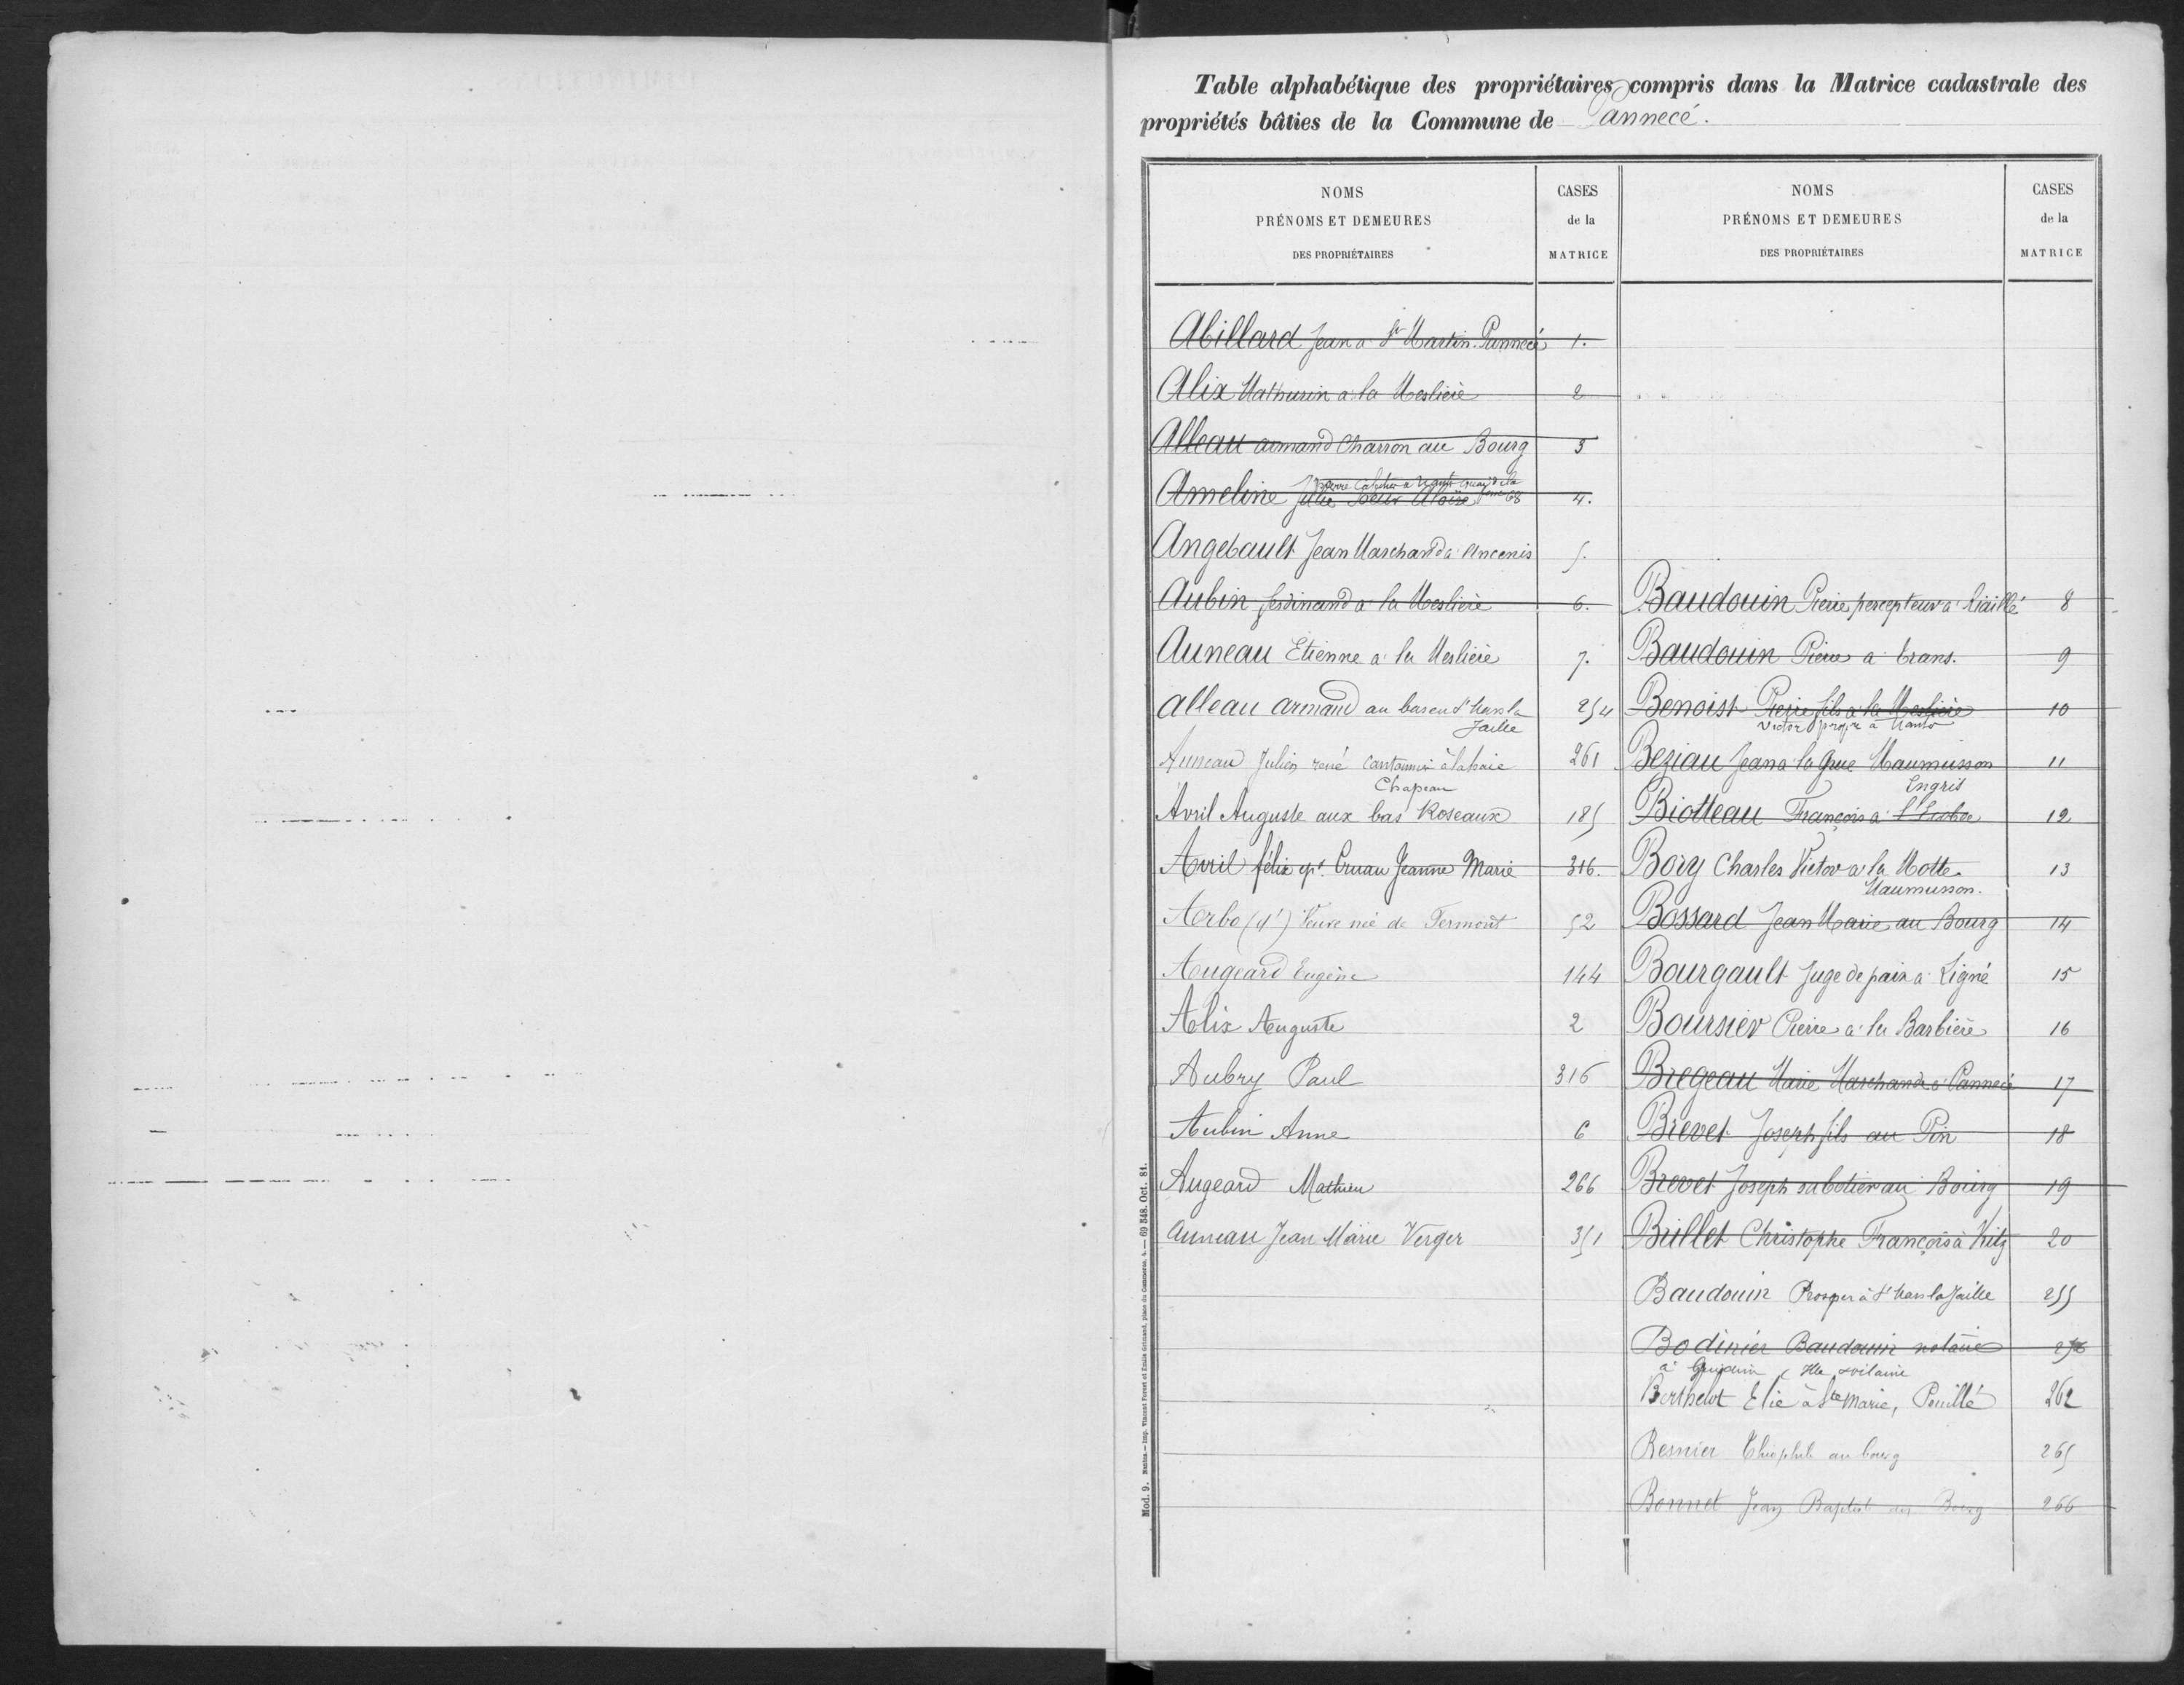 Table alphabétique des propriétaires compris dans la Matrice cadastrale des
propriétés bâties de la Commune de Pannecé.
NOMS
PRÉNOMS ET DEMEURES
DES PROPRIÉTAIRES
CASES
de la
MATRICE
Abillard Jean a St Martin. Pannecé 1.
Alix Mathurin a la Meslière 2
Alleau armand Charron au Bourg 3
Pierre à quai de la
Ameline Julie 68 4.
Angebault Jean Marchand a Ancenis 5.
Aubin ferdinand a la Meslière 6.
Auneau Etienne a la Meslière 7.
alleau armand au bas en St Mars la 254
Jaille
Auneau Julien rené Cantonnier à la haie 261
Chapeau
Avril Auguste aux bas Roseaux 185
Avril félix ep. Cruau Jeanne Marie 316.
Aerbo (d') Veuve née de Fermont 52
Augeard Eugène 144
Alix Auguste 2
Aubry Paul 316
Aubin Anne 6
Augeard Mathieu 266
auneau Jean Marie Verger 351
NOMS
PRÉNOMS ET DEMEURES
DES PROPRIÉTAIRES
CASES
de la
MATRICE
Baudouin Pierre percepteur a Riaillé 8
Baudouin Pierre a trans. 9
Benoist Pierre fils a la Meslière 10
Victor propre à Nantes
Beziau Jean a la Grue Maumusson 11
Ingris
Biotteau François a 12
Bory Charles Victor a la Motte 13
Maumusson.
Bossard Jean Marie au Bourg 14
Bourgault Juge de paix a Ligné 15
Boursier Pierre a la Barbière 16
Bregeau Marie Marchande a Pannecé 17
Brevet Joseph fils au Pin 18
Brevet Joseph sabotier au Bourg 19
Brillet Christophe François à Vritz 20
Baudouin Prosper à St Mars la Jaille 255
Bodinier Baudouin notaire
à Guipavin Ille & vilaine
Berthelot Elie à Ste Marie, Pouillé 262
Besnier Théophile au bourg 265
Bonnet Jean Baptiste au Bourg 266
Mod. 9. Nantes.— Imp. Vincent Forest et Émile Grimaud, place du Commerce, 4. — 69 348. Oct. 81.